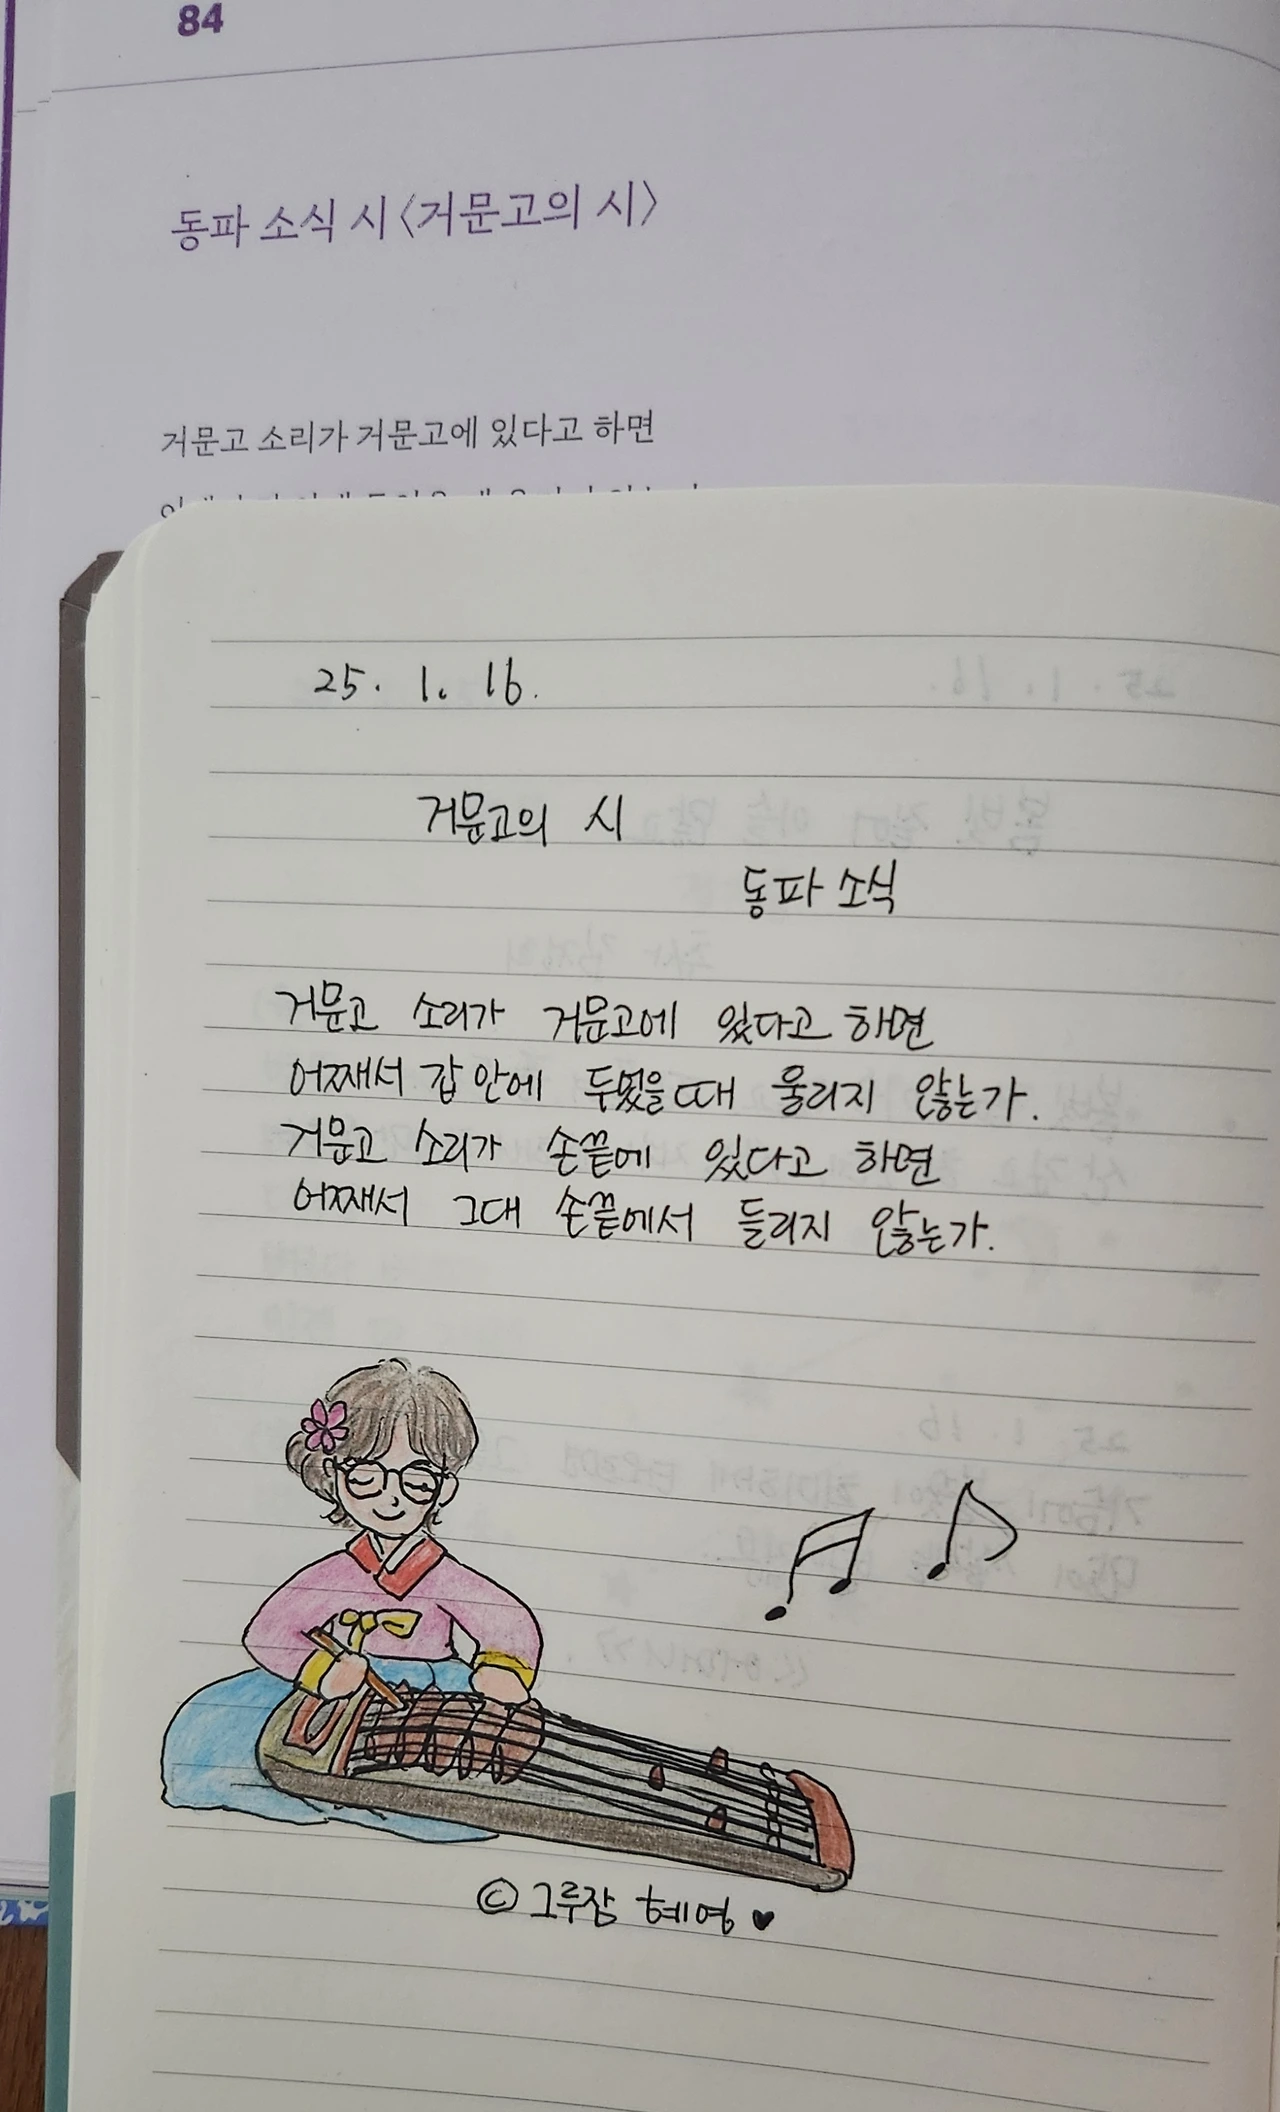 84
동파 소식 시 〈거문고의 시〉
거문고 소리가 거문고에 있다고 하면
25. 1. 16.
거문고의 시
동파 소식
거문고 소리가 거문고에 있다고 하면
어째서 갑 안에 두었을때 울리지 않는가.
거문고 소리가 손끝에 있다고 하면
어째서 그대 손끝에서 들리지 않는가.
© 그루잠 혜영 ♥